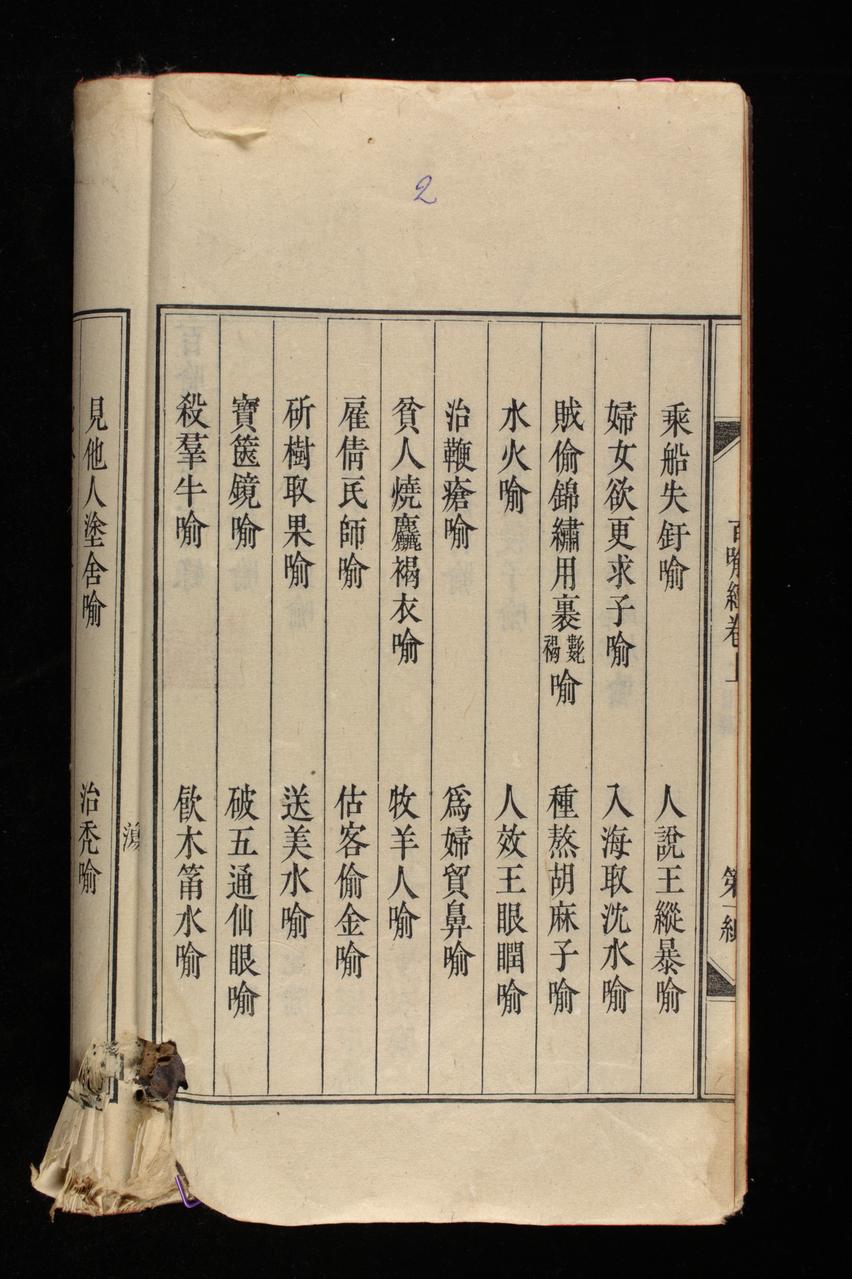 2
百喻經卷上
第一
乘船失釪喻
人說王縱暴喻
婦女欲更求子喻
入海取沈水喻
賊偷錦繡用裹氀褐喻
種熬胡麻子喻
水火喻
人效王眼瞤喻
治鞭瘡喻
爲婦貿鼻喻
貧人燒麤褐衣喻
牧羊人喻
雇倩瓦師喻
估客偷金喻
斫樹取果喻
送美水喻
寶篋鏡喻
破五通仙眼喻
殺羣牛喻
飮木筩水喻
見他人塗舍喻
治禿喻